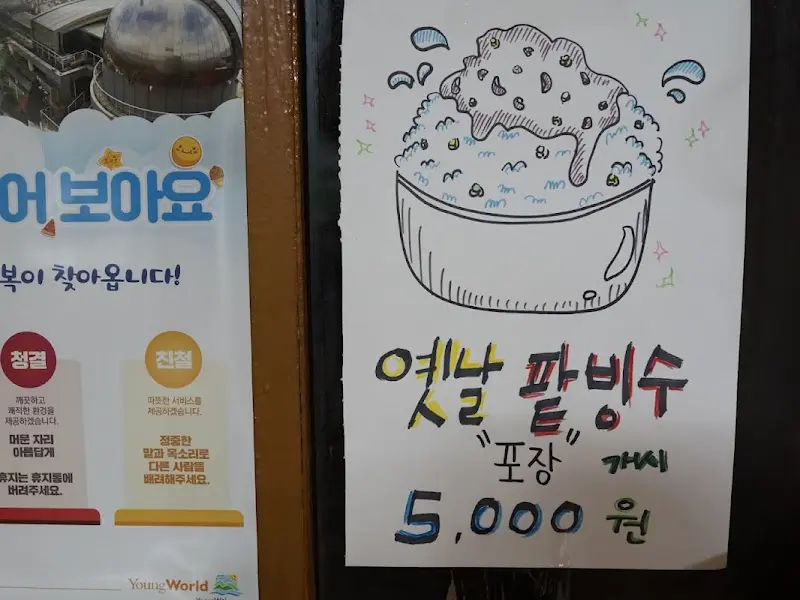 어 보아요
복이 찾아옵니다!
청결
깨끗하고
쾌적한 환경을
제공하겠습니다.
머문 자리
아름답게
휴지는 휴지통에
버려주세요.
친절
따뜻한 서비스를
제공하겠습니다.
정중한
말과 목소리로
다른 사람을
배려해주세요.
YoungWorld
옛날 팥빙수
"포장" 개시
5,000 원